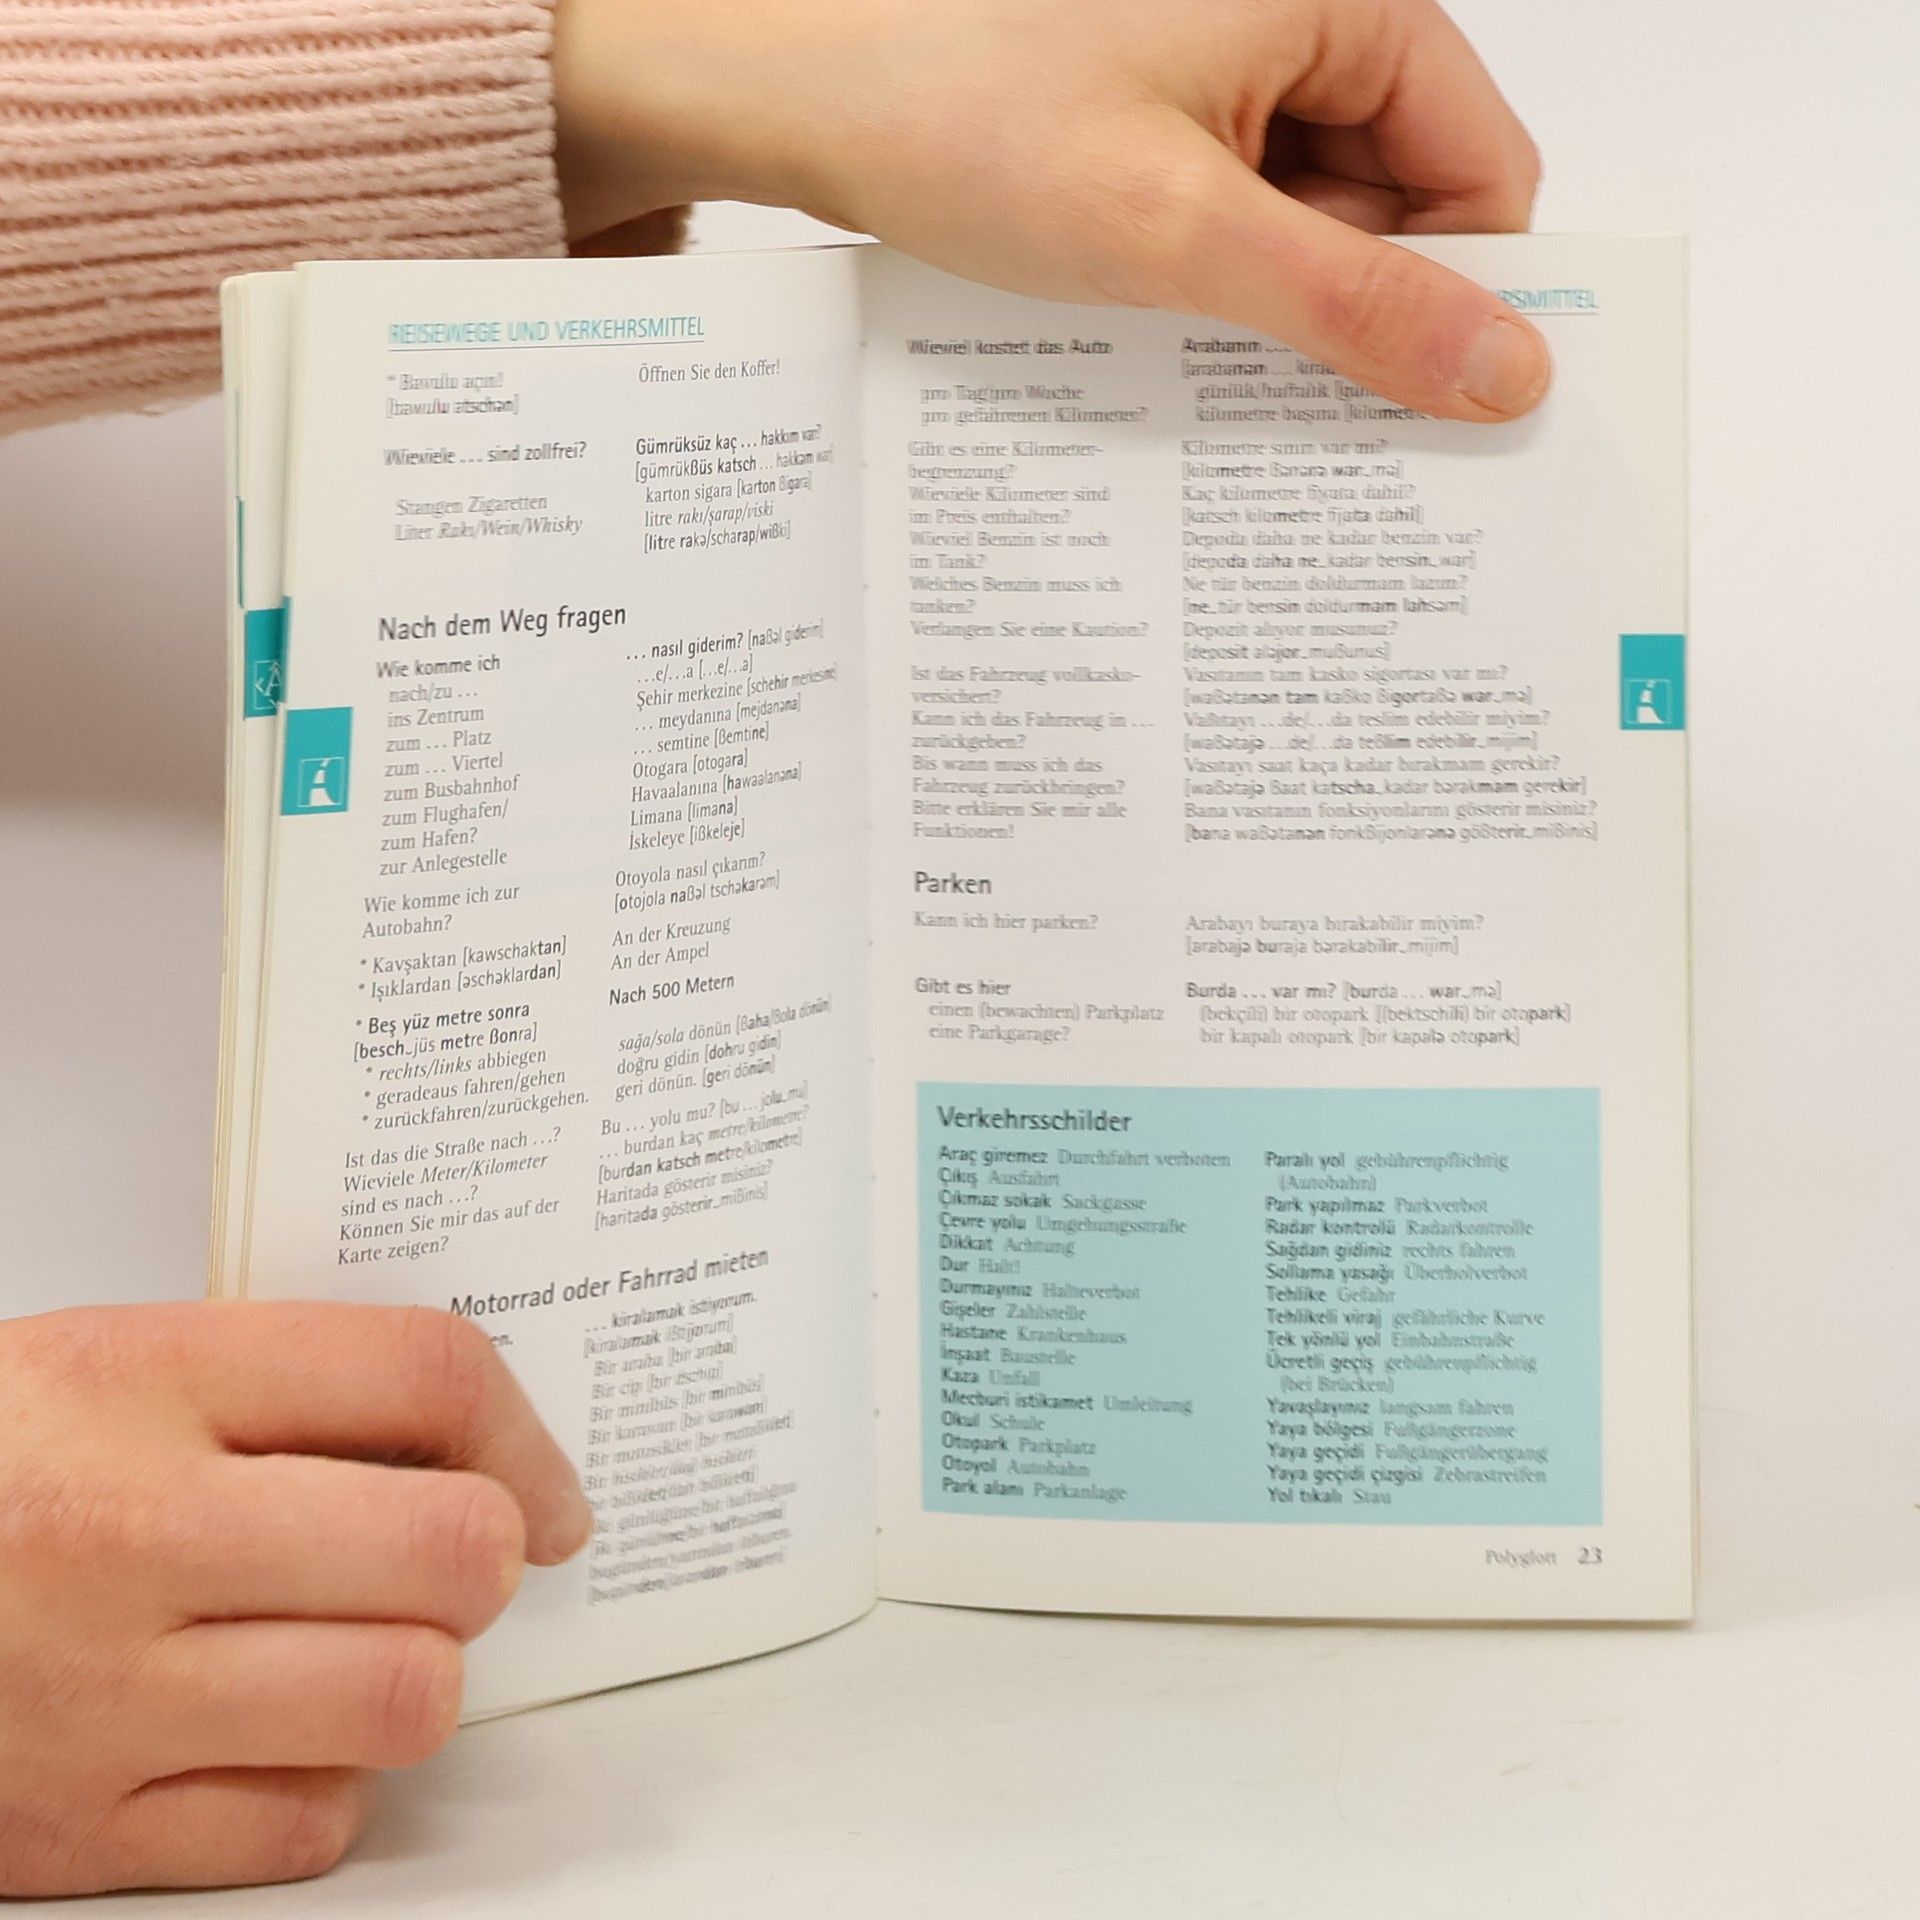 REISEWEGE UND VERKEHRSMITTEL
* Bavulu açın! Öffnen Sie den Koffer!
[bawulu atschən]
Wieviele … sind zollfrei? Gümrüksüz kaç … hakkım var?
[gümrükßüs katsch … hakkəm war]
Stangen Zigaretten karton sigara [karton ßigara]
Liter Rakı/Wein/Whisky litre rakı/şarap/viski
[litre rakə/scharap/wißki]
Nach dem Weg fragen
Wie komme ich … nasıl giderim? [naßəl giderim]
nach/zu … …e/…a […e/…a]
ins Zentrum Şehir merkezine [schehir merkesine]
zum … Platz … meydanına [mejdanəna]
zum … Viertel … semtine [ßemtine]
zum Busbahnhof Otogara [otogara]
zum Flughafen/ Havaalanına [hawaalanəna]
zum Hafen? Limana [limana]
zur Anlegestelle İskeleye [ißkeleje]
Wie komme ich zur Otoyola nasıl çıkarım?
Autobahn? [otojola naßəl tschəkarəm]
* Kavşaktan [kawschaktan] An der Kreuzung
* Işıklardan [əschəklardan] An der Ampel
* Beş yüz metre sonra Nach 500 Metern
[besch_jüs metre ßonra]
* rechts/links abbiegen sağa/sola dönün [ßaha/ßola dönün]
* geradeaus fahren/gehen doğru gidin [dohru gidin]
* zurückfahren/zurückgehen. geri dönün. [geri dönün]
Ist das die Straße nach …? Bu … yolu mu? [bu … jolu_mu]
Wieviele Meter/Kilometer … burdan kaç metre/kilometre?
sind es nach …? [burdan katsch metre/kilometre]
Können Sie mir das auf der Haritada gösterir misiniz?
Karte zeigen? [haritada gösterir_mißinis]
Motorrad oder Fahrrad mieten
en. … kiralamak istiyorum.
[kiralamak ißtijorum]
Bir araba [bir araba]
Bir cip [bir dschip]
Bir minibüs [bir minibüs]
Bir karavan [bir karawan]
RSMITTEL
Wieviel kostet das Auto Arabanın …
[arabanən …
pro Tag/pro Woche günlük/haftalık
pro gefahrenen Kilometer? kilometre başına [kilometre
Gibt es eine Kilometer- Kilometre sınırı var mı?
begrenzung? [kilometre ßənərə war_mə]
Wieviele Kilometer sind Kaç kilometre fiyata dahil?
im Preis enthalten? [katsch kilometre fijata dahil]
Wieviel Benzin ist noch Depoda daha ne kadar benzin var?
im Tank? [depoda daha ne_kadar bensin_war]
Welches Benzin muss ich Ne tür benzin doldurmam lazım?
tanken? [ne_tür bensin doldurmam lahsəm]
Verlangen Sie eine Kaution? Depozit alıyor musunuz?
[deposit aləjor_mußunus]
Ist das Fahrzeug vollkasko- Vasıtanın tam kasko sigortası var mı?
versichert? [waßətanən tam kaßko ßigortaßə war_mə]
Kann ich das Fahrzeug in … Vasıtayı …de/…da teslim edebilir miyim?
zurückgeben? [waßətajə …de/…da teßlim edebilir_mijim]
Bis wann muss ich das Vasıtayı saat kaça kadar bırakmam gerekir?
Fahrzeug zurückbringen? [waßətajə ßaat katscha_kadar bərakmam gerekir]
Bitte erklären Sie mir alle Bana vasıtanın fonksiyonlarını gösterir misiniz?
Funktionen! [bana waßətanən fonkßijonlarənə gößterir_mißinis]
Parken
Kann ich hier parken? Arabayı buraya bırakabilir miyim?
[arabajə buraja bərakabilir_mijim]
Gibt es hier Burda … var mı? [burda … war_mə]
einen (bewachten) Parkplatz (bekçili) bir otopark [(bektschili) bir otopark]
eine Parkgarage? bir kapalı otopark [bir kapalə otopark]
Verkehrsschilder
Araç giremez Durchfahrt verboten
Çıkış Ausfahrt
Çıkmaz sokak Sackgasse
Çevre yolu Umgehungsstraße
Dikkat Achtung
Dur Halt!
Durmayınız Halteverbot
Gişeler Zahlstelle
Hastane Krankenhaus
İnşaat Baustelle
Kaza Unfall
Mecburi istikamet Umleitung
Okul Schule
Otopark Parkplatz
Otoyol Autobahn
Park alanı Parkanlage
Paralı yol gebührenpflichtig
(Autobahn)
Park yapılmaz Parkverbot
Radar kontrolü Radarkontrolle
Sağdan gidiniz rechts fahren
Sollama yasağı Überholverbot
Tehlike Gefahr
Tehlikeli viraj gefährliche Kurve
Tek yönlü yol Einbahnstraße
Ücretli geçiş gebührenpflichtig
(bei Brücken)
Yavaşlayınız langsam fahren
Yaya bölgesi Fußgängerzone
Yaya geçidi Fußgängerübergang
Yaya geçidi çizgisi Zebrastreifen
Yol tıkalı Stau
Polyglott 23